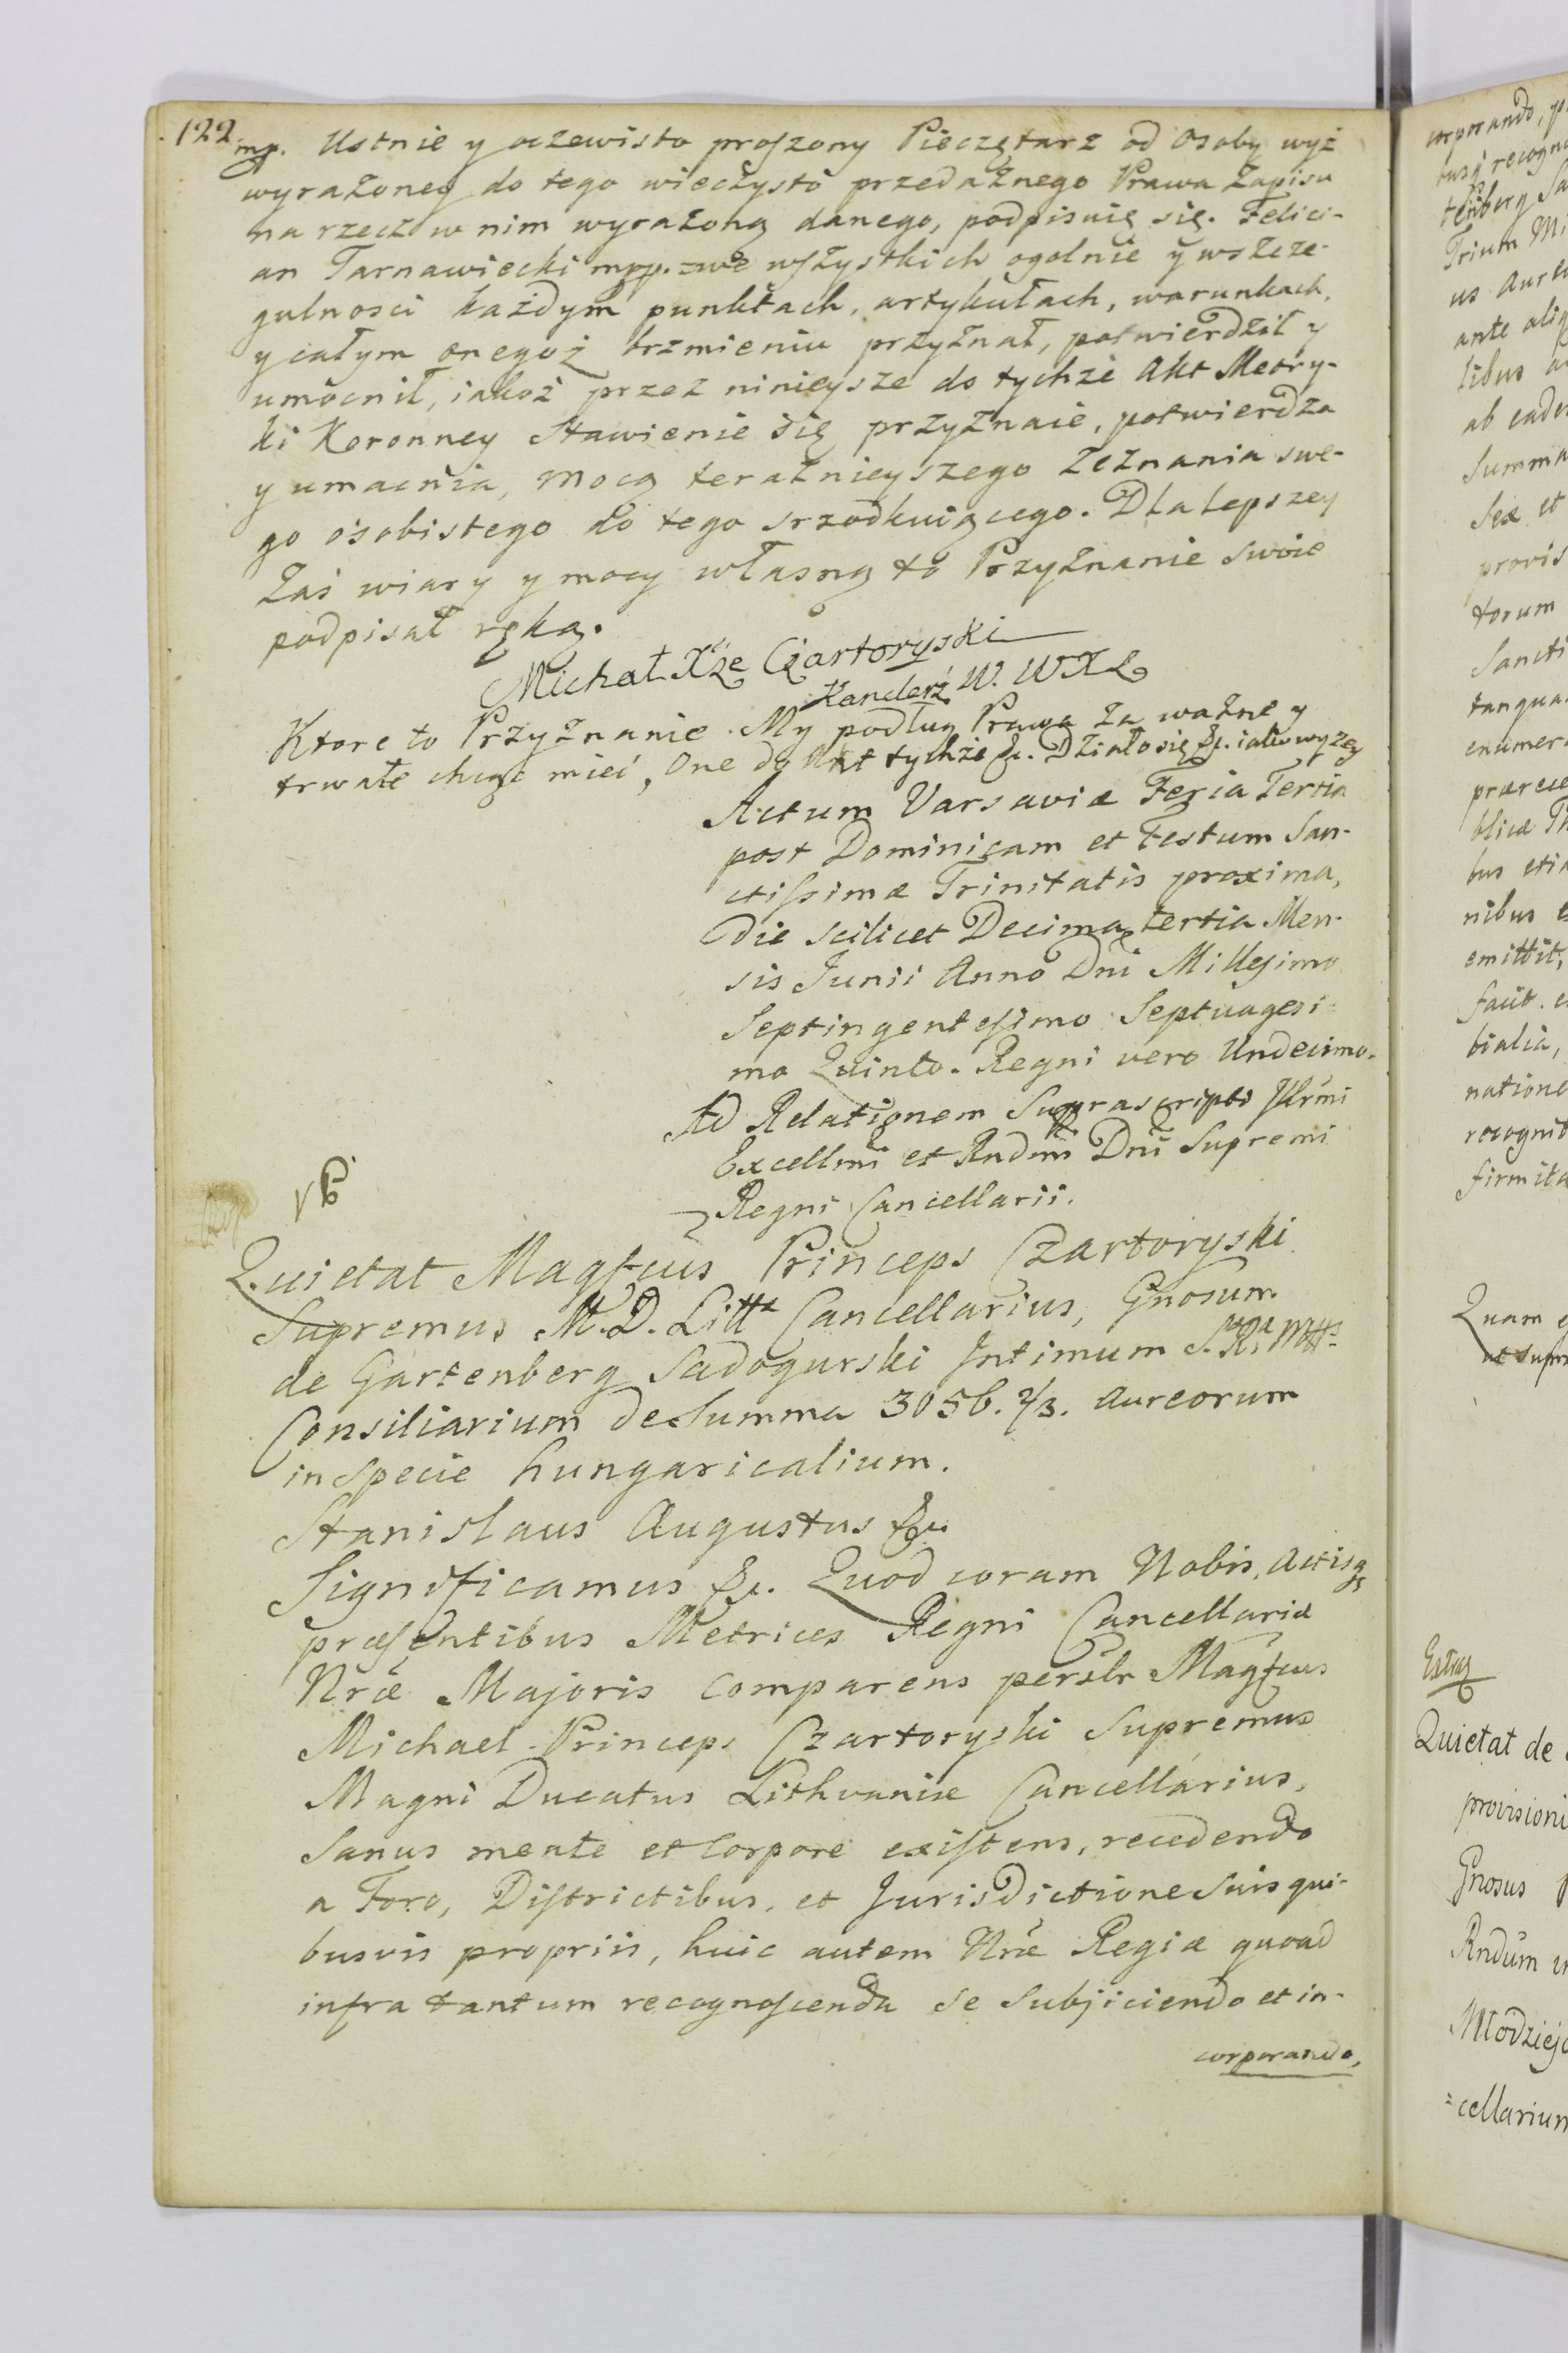 122
mp. Ustnie y oczewisto proszony Pieczętarz od Osoby wyż
wyrażoney do tego wieczysto przedażnego Prawa Zapisu
na rzecz w nim wyrażoną danego, podpisuię się. Felici-
an Tarnawiecki mpp. we wszystkich ogolnie y wszcze-
gulnosci każdym punktach, artykułach, warunkach,
y całym onegoż brzmieniu przyznał, potwierdził y
umocnił, iakoż przez ninieysze do tychże Akt Metry-
ki Koronney Stawienie się przyznaie, potwierdza
y umacnia, mocą teraznieyszego Zeznania swe-
go osobistego do tego srzodkuiącego. Dla lepszey
Zaś wiary y mocy własną to Przyznanie swoie
podpisał ręką.
Michał Xże Czartoryski
Kanclerz W. WXL
Ktore to Przyznanie My podług Prawa za ważne y
trwałe chcąc mieć, One do Akt tychże &c. Działo się &c. iako wyzey
Actum Varsaviæ Feria Tertia
post Dominicam et Festum San-
ctissimæ Trinitatis proxima,
die scilicet Decima tertia Men-
sis Junii Anno Dni Millesimo
Septingentesimo Septuagesi-
mo Quinto. Regni vero Undecimo.
Ad Relationem Suprascripti Illrmi
Excellmi et Rndmi Dni Supremi
Regni Cancellarii.
Quietat Magfcus Princeps Czartoryski
Supremus M. D. Litt. Cancellarius, Gnosum
de Gartenberg Sadogurski Intimum S. Ræ Mttis
Consiliarium de Summa 3056. 2/3. Aureorum
in Specie hungaricalium.
Stanislaus Augustus &c.
Significamus &c. Quod coram Nobis, Actisq
præsentibus Metrices Regni Cancellariæ
Nræ Majoris Comparens persłr Magfcus
Michael Princeps Czartoryski Supremus
Magni Ducatus Lithvaniæ Cancellarius,
Sanus mente et Corpore existens, recedendo
a Foro, Districtibus, et Jurisdictione Suis qui-
busvis propriis, huic autem Nræ Regiæ quoad
infra tantum recognoscenda se Subjiciendo et in-
corporando,
corporando,
recogno
tenberg Sa
Trium Mi
us Aure
ante aliq
libus
ab eade
Summa
Sex et
provis
torum
Sancti
tanqua
enumer
præce
blicæ Th
bus etia
nibus e
emittit,
facit. e
bialia,
natione
recognit
firmita
Quam e
ut supr
Quietat de
provisioni
Gnosus
Rndum
Młodziejo
cellarium